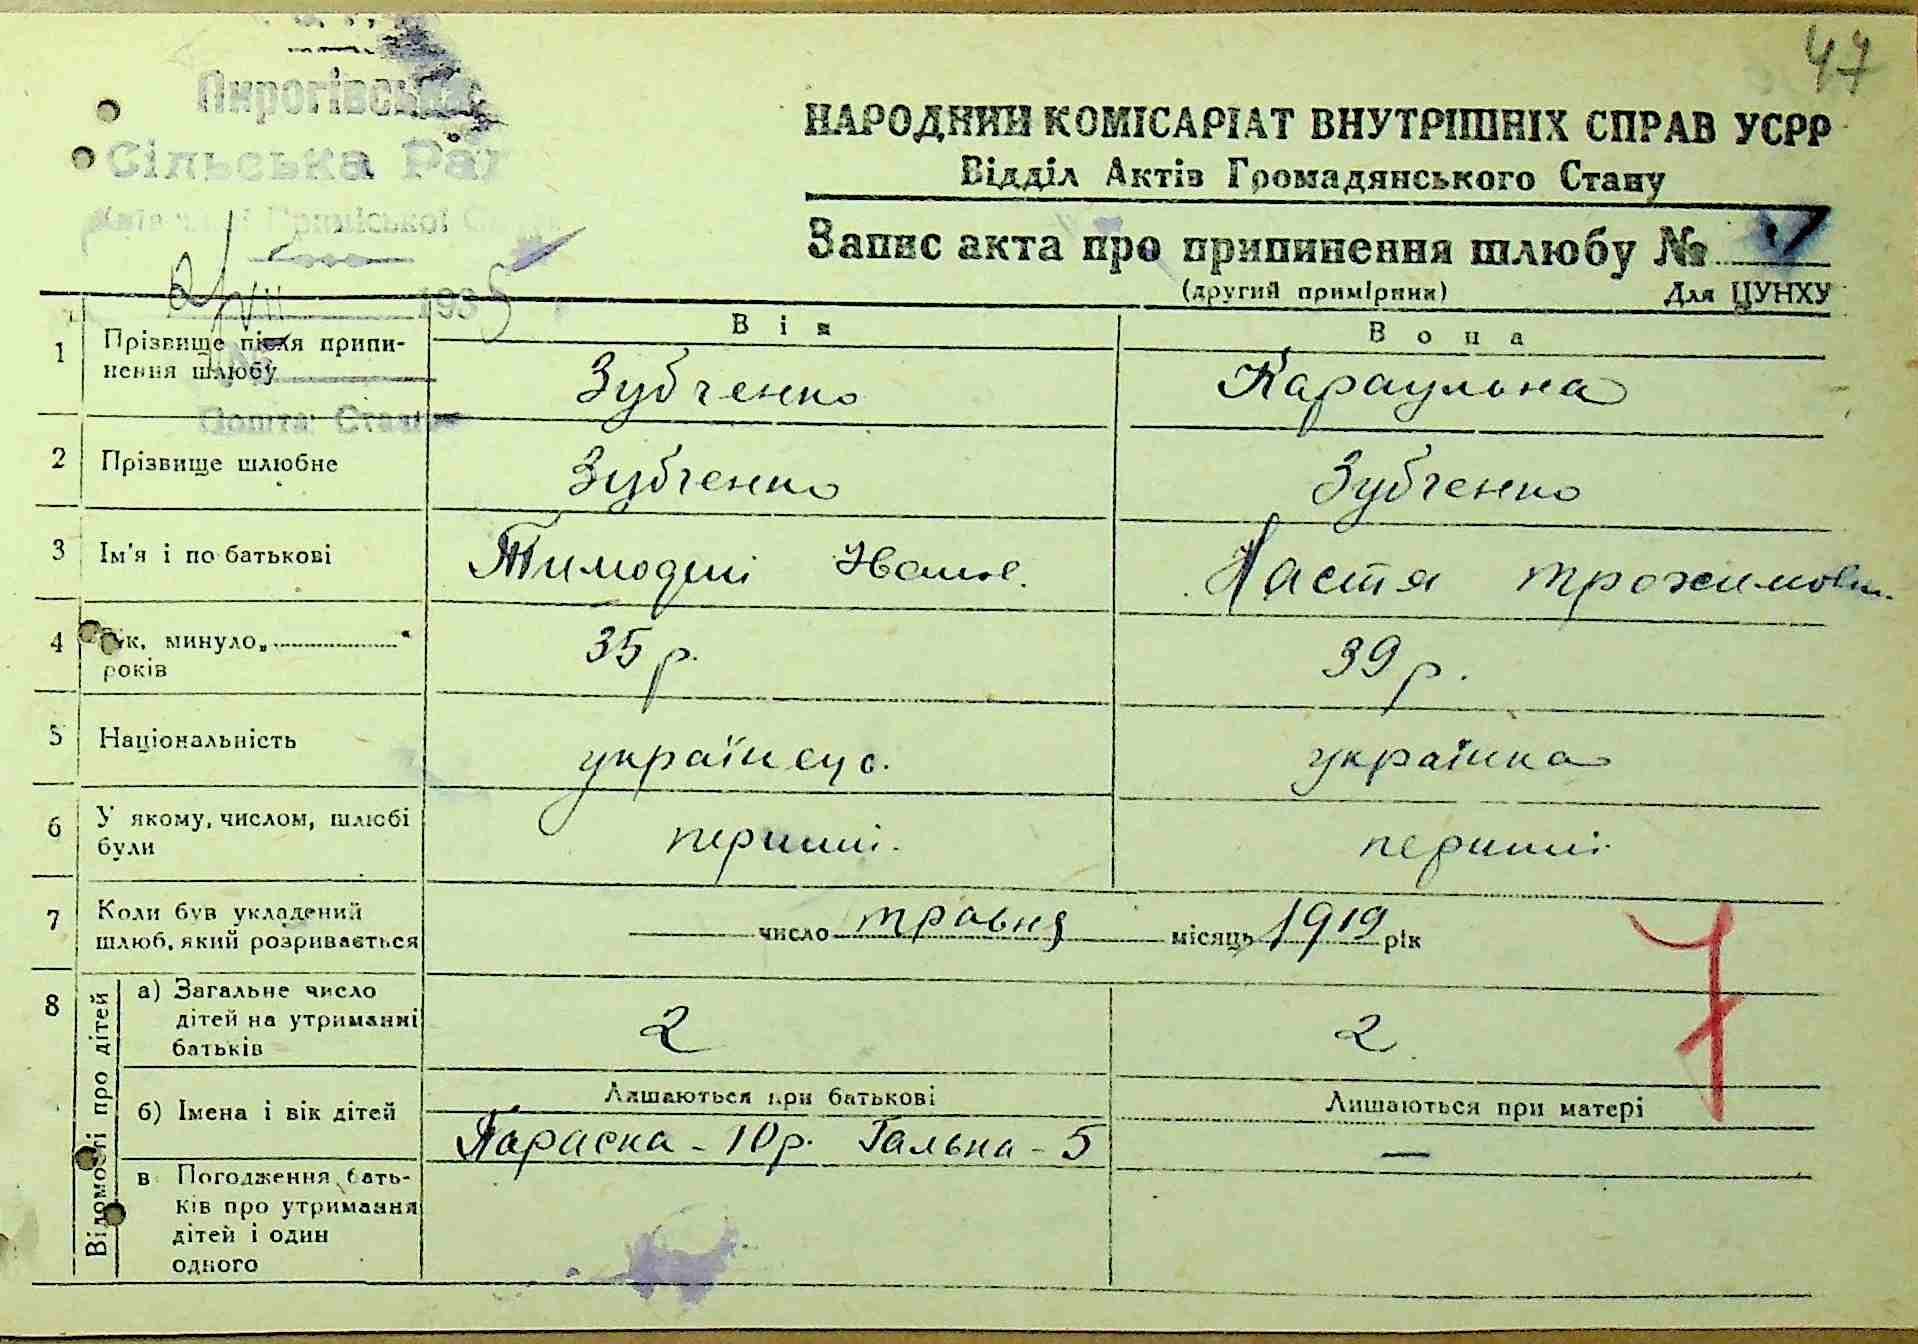 47
Пирогівська
Сільська Рад
Приміської
НАРОДНИЙ КОМІСАРІАТ ВНУТРІШНІХ СПРАВ УСРР
Відділ Актів Громадянського Стану
Запис акта про припинення шлюбу №
(другий примірник) Для ЦУНХУ
VII 1935
Він Вона
1 Прізвище після припи-
нення шлюбу Зубченко Караульна
Пошта:
2 Прізвище шлюбне Зубченко Зубченко
3 Ім'я і по батькові Тимофій Іванов. Настя Трохимовн.
4 Вік, минуло „ "
років 35 р. 39 р.
5 Національність українець. українка
6 У якому, числом, шлюбі
були перший. перший.
7 Коли був укладений
шлюб, який розривається число травня місяць 1919 рік
7
8 Відомості про дітей
а) Загальне число
дітей на утриманні
батьків 2 2
Лишаються при батькові Лишаються при матері
б) Імена і вік дітей Параска - 10 р. Галька - 5 —
в Погодження бать-
ків про утримання
дітей і один
одного